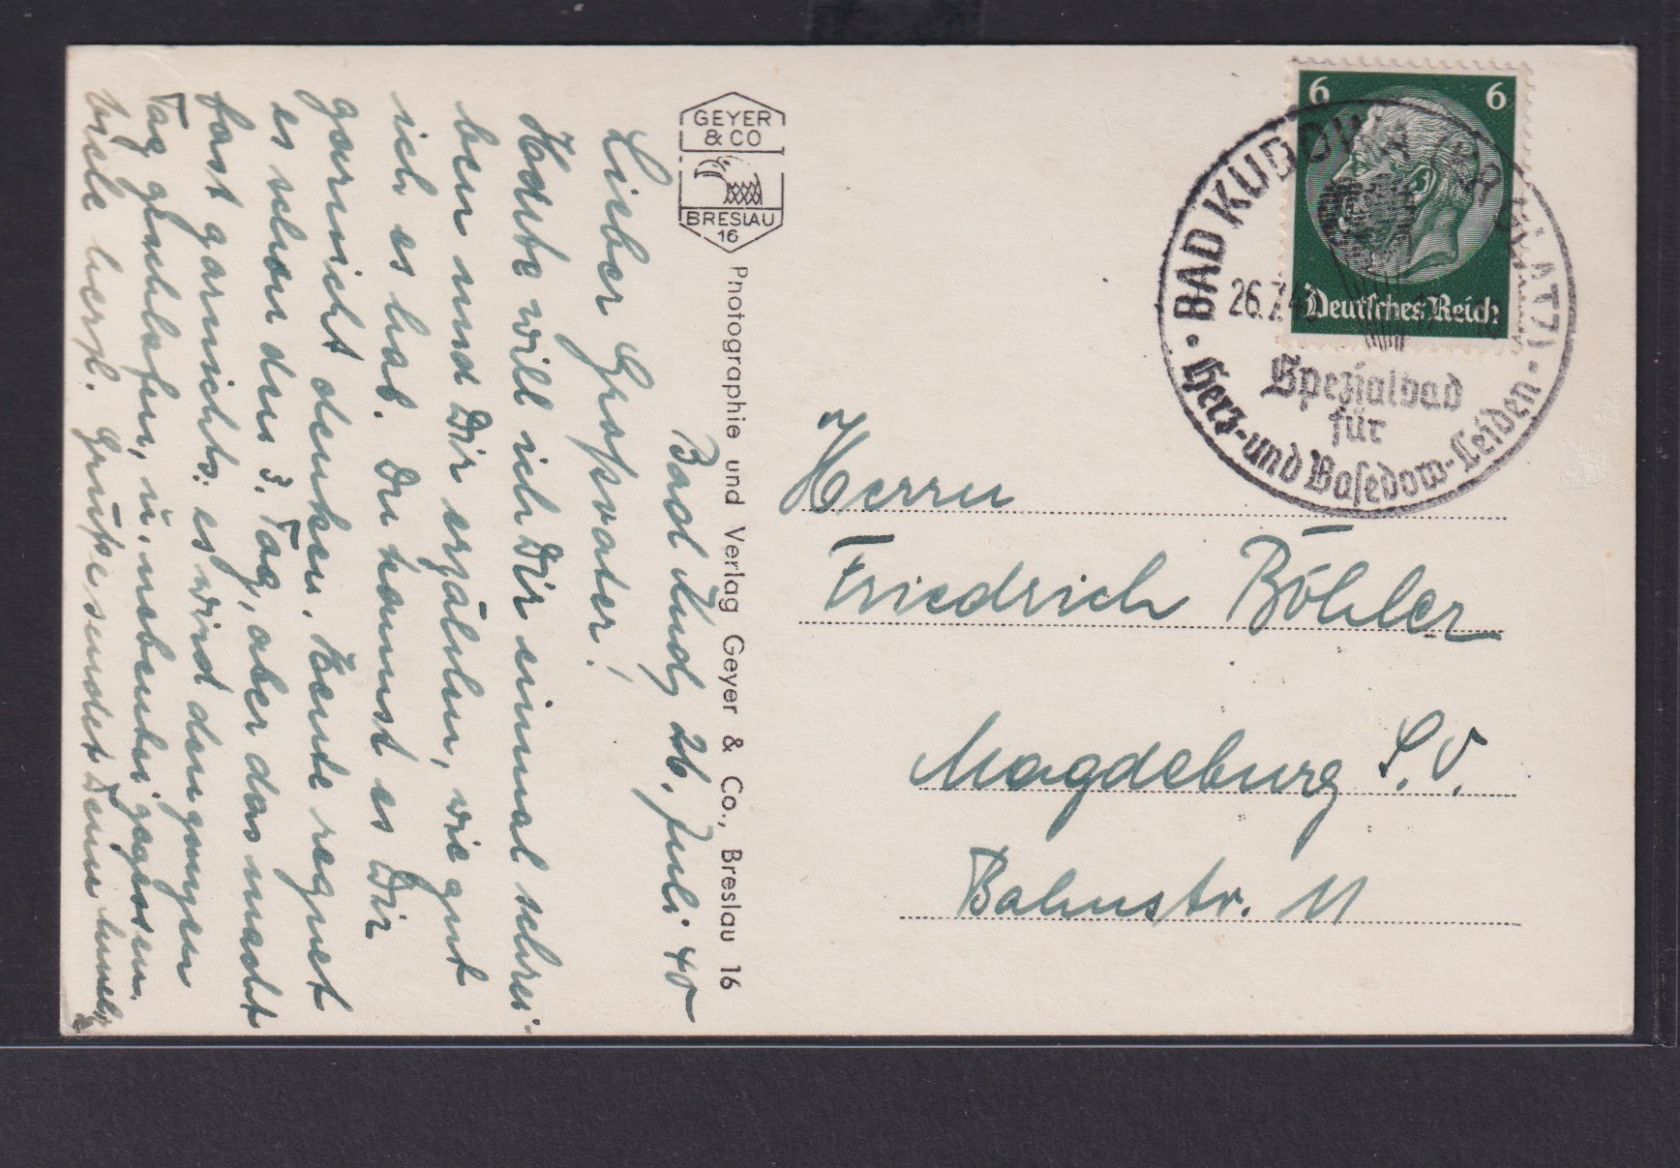 Bad Kud, 26. Juli 40
Lieber Großvater!
Heute will ich Dir einmal schrei-
ben und Dir erzählen, wie gut
ich es hab. Du kannst es Dir
garnicht denken. Heute regnet
es schon den 3. Tag, aber das macht
fast garnichts; es wird den ganzen
Tag geschlafen, u. nebenbei gegessen.
viele herzl. Grüße sendet Deine
GEYER
& CO
BRESLAU
16
Photographie und Verlag Geyer & Co., Breslau 16
6 6
Deutsches Reich
BAD KUDOWA (KR. GLATZ)
26.7.40
Spezialbad
für
Herz- und Basedow-Leiden
Herrn
Friedrich Böhler
Magdeburg S.O.
Bahnstr. 11